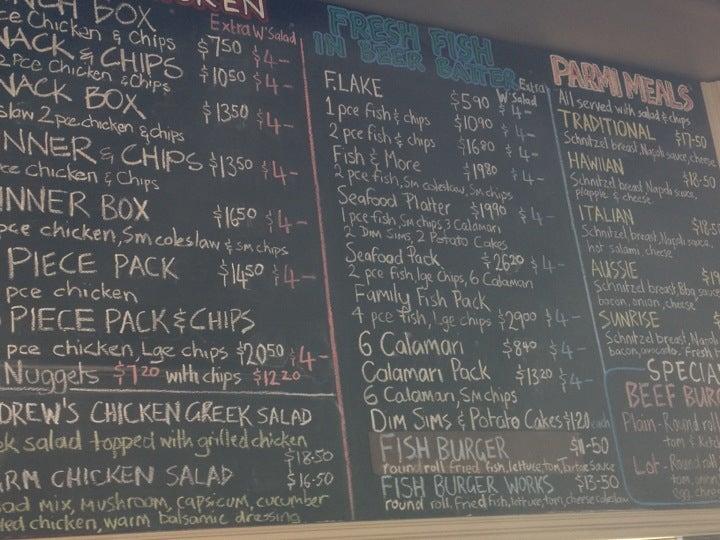 BOX
Chicken & Chips $7.50
Extra W' Salad
$4-
& CHIPS
2 Pce Chicken & Chips $10.50 $4-
BOX
slaw 2 pce. chicken & chips $13.50 $4-
& CHIPS $13.50 $4-
chicken & Chips
BOX $16.50 $4-
chicken, Sm coleslaw & sm chips
PIECE PACK $14.50 $4-
pce chicken
PIECE PACK & CHIPS
pce chicken, Lge chips $20.50 $4-
Nuggets $7.20 with chips $12.20
CHICKEN GREEK SALAD
salad topped with grilled chicken
$18.50
CHICKEN SALAD $16.50
mix, mushroom, capsicum, cucumber
chicken, warm balsamic dressing
FRESH FISH
IN BEER BATTER
Extra
W Salad
FLAKE $5.90 $4-
1 pce fish & chips $10.90 $4-
2 pce fish & chips $16.80 $4-
Fish & More $19.80
2 pce fish, Sm coleslaw, Sm chips
Seafood Platter $19.90 $4-
1 pce fish, Sm chips, 3 Calamari
2 Dim Sims, 2 Potato Cakes
Seafood Pack $26.20 $4-
2 pce fish, lge Chips, 6 Calamari
Family Fish Pack
4 pce fish, Lge chips $29.00 $4-
6 Calamari $8.40 $4-
Calamari Pack $13.20 $4-
6 Calamari, Sm chips
DIM SIMS & POTATO CAKES $1.20 each
FISH BURGER $11-50
round roll. fried fish, lettuce, tom, Tartare Sauce
FISH BURGER WORKS $13-50
round roll. Fried fish, lettuce, tom, cheese, coleslaw
PARMI MEALS
All served with salad & chips
TRADITIONAL $17-50
Schnitzel breast, Napoli sauce, cheese
HAWIIAN $18-50
Schnitzel breast, Napoli sauce,
p/apple & cheese
ITALIAN
Schnitzel breast, Napoli sauce,
hot salami, cheese
AUSSIE
Schnitzel breast, Bbq
bacon, onion, cheese
SUNRISE
Schnitzel breast,
bacon, avocado. Fresh
BEEF
Plain - Round
tom &
Lot - Round
tom,
egg,